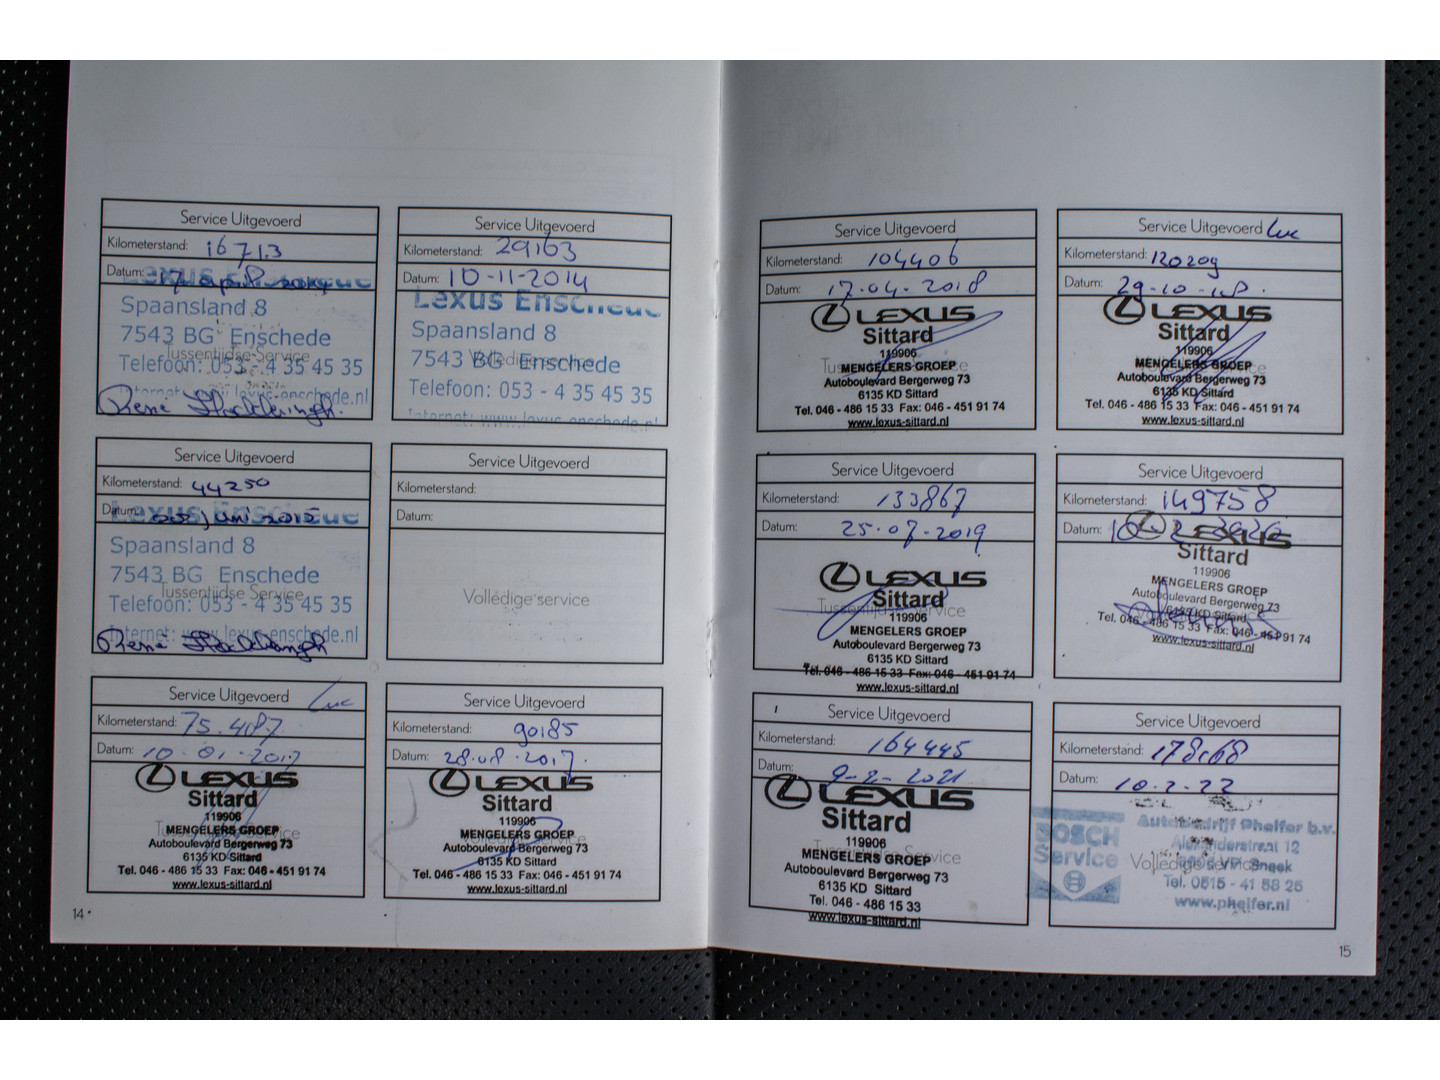 Service Uitgevoerd
Kilometerstand: 16713
Datum: 17 april 2014
Lexus Enschede
Spaansland 8
7543 BG Enschede
Tussentijdse Service
Telefoon: 053 - 4 35 45 35
Internet: www.lexus-enschede.nl
Service Uitgevoerd
Kilometerstand: 29163
Datum: 10-11-2014
Lexus Enschede
Spaansland 8
Volledige service
7543 BG Enschede
Telefoon: 053 - 4 35 45 35
Internet: www.lexus-enschede.nl
Service Uitgevoerd
Kilometerstand: 44250
Datum: juni 2015
Lexus Enschede
Spaansland 8
7543 BG Enschede
Tussentijdse Service
Telefoon: 053 - 4 35 45 35
Internet: www.lexus-enschede.nl
Service Uitgevoerd
Kilometerstand:
Datum:
Volledige service
Service Uitgevoerd Luc
Kilometerstand: 75.487
Datum: 10-01-2017
LEXUS
Sittard
119906
Tussentijdse Service
MENGELERS GROEP
Autoboulevard Bergerweg 73
6135 KD Sittard
Tel. 046 - 486 15 33 Fax: 046 - 451 91 74
www.lexus-sittard.nl
Service Uitgevoerd
Kilometerstand: 90185
Datum: 28.08.2017.
LEXUS
Sittard
119906
Volledige service
MENGELERS GROEP
Autoboulevard Bergerweg 73
6135 KD Sittard
Tel. 046 - 486 15 33 Fax: 046 - 451 91 74
www.lexus-sittard.nl
14
Service Uitgevoerd
Kilometerstand: 104406
Datum: 17.04.2018
LEXUS
Sittard
119906
Tussentijdse Service
MENGELERS GROEP
Autoboulevard Bergerweg 73
6135 KD Sittard
Tel. 046 - 486 15 33 Fax: 046 - 451 91 74
www.lexus-sittard.nl
Service Uitgevoerd Luc
Kilometerstand: 120209
Datum: 29-10-18.
LEXUS
Sittard
119906
MENGELERS GROEP
Autoboulevard Bergerweg 73
6135 KD Sittard
Tel. 046 - 486 15 33 Fax: 046 - 451 91 74
www.lexus-sittard.nl
Service Uitgevoerd
Kilometerstand: 133867
Datum: 25.07.2019
LEXUS
Sittard
Tussentijdse Service
119906
MENGELERS GROEP
Autoboulevard Bergerweg 73
6135 KD Sittard
Tel. 046 - 486 15 33 Fax: 046 - 451 91 74
www.lexus-sittard.nl
Service Uitgevoerd
Kilometerstand: 149758
Datum: 10-2-2020
LEXUS
Sittard
119906
MENGELERS GROEP
Autoboulevard Bergerweg 73
6135 KD Sittard
Tel. 046 - 486 15 33 Fax: 046 - 451 91 74
www.lexus-sittard.nl
Service Uitgevoerd
Kilometerstand: 164445
Datum: 9-2-2021
LEXUS
Sittard
119906
Tussentijdse Service
MENGELERS GROEP
Autoboulevard Bergerweg 73
6135 KD Sittard
Tel. 046 - 486 15 33
www.lexus-sittard.nl
Service Uitgevoerd
Kilometerstand: 178168
Datum: 10.2.22
BOSCH
Service
Autobedrijf Pheifer b.v.
12
Volledige service
Sneek
Tel. 0515 - 41 58 25
www.pheifer.nl
15